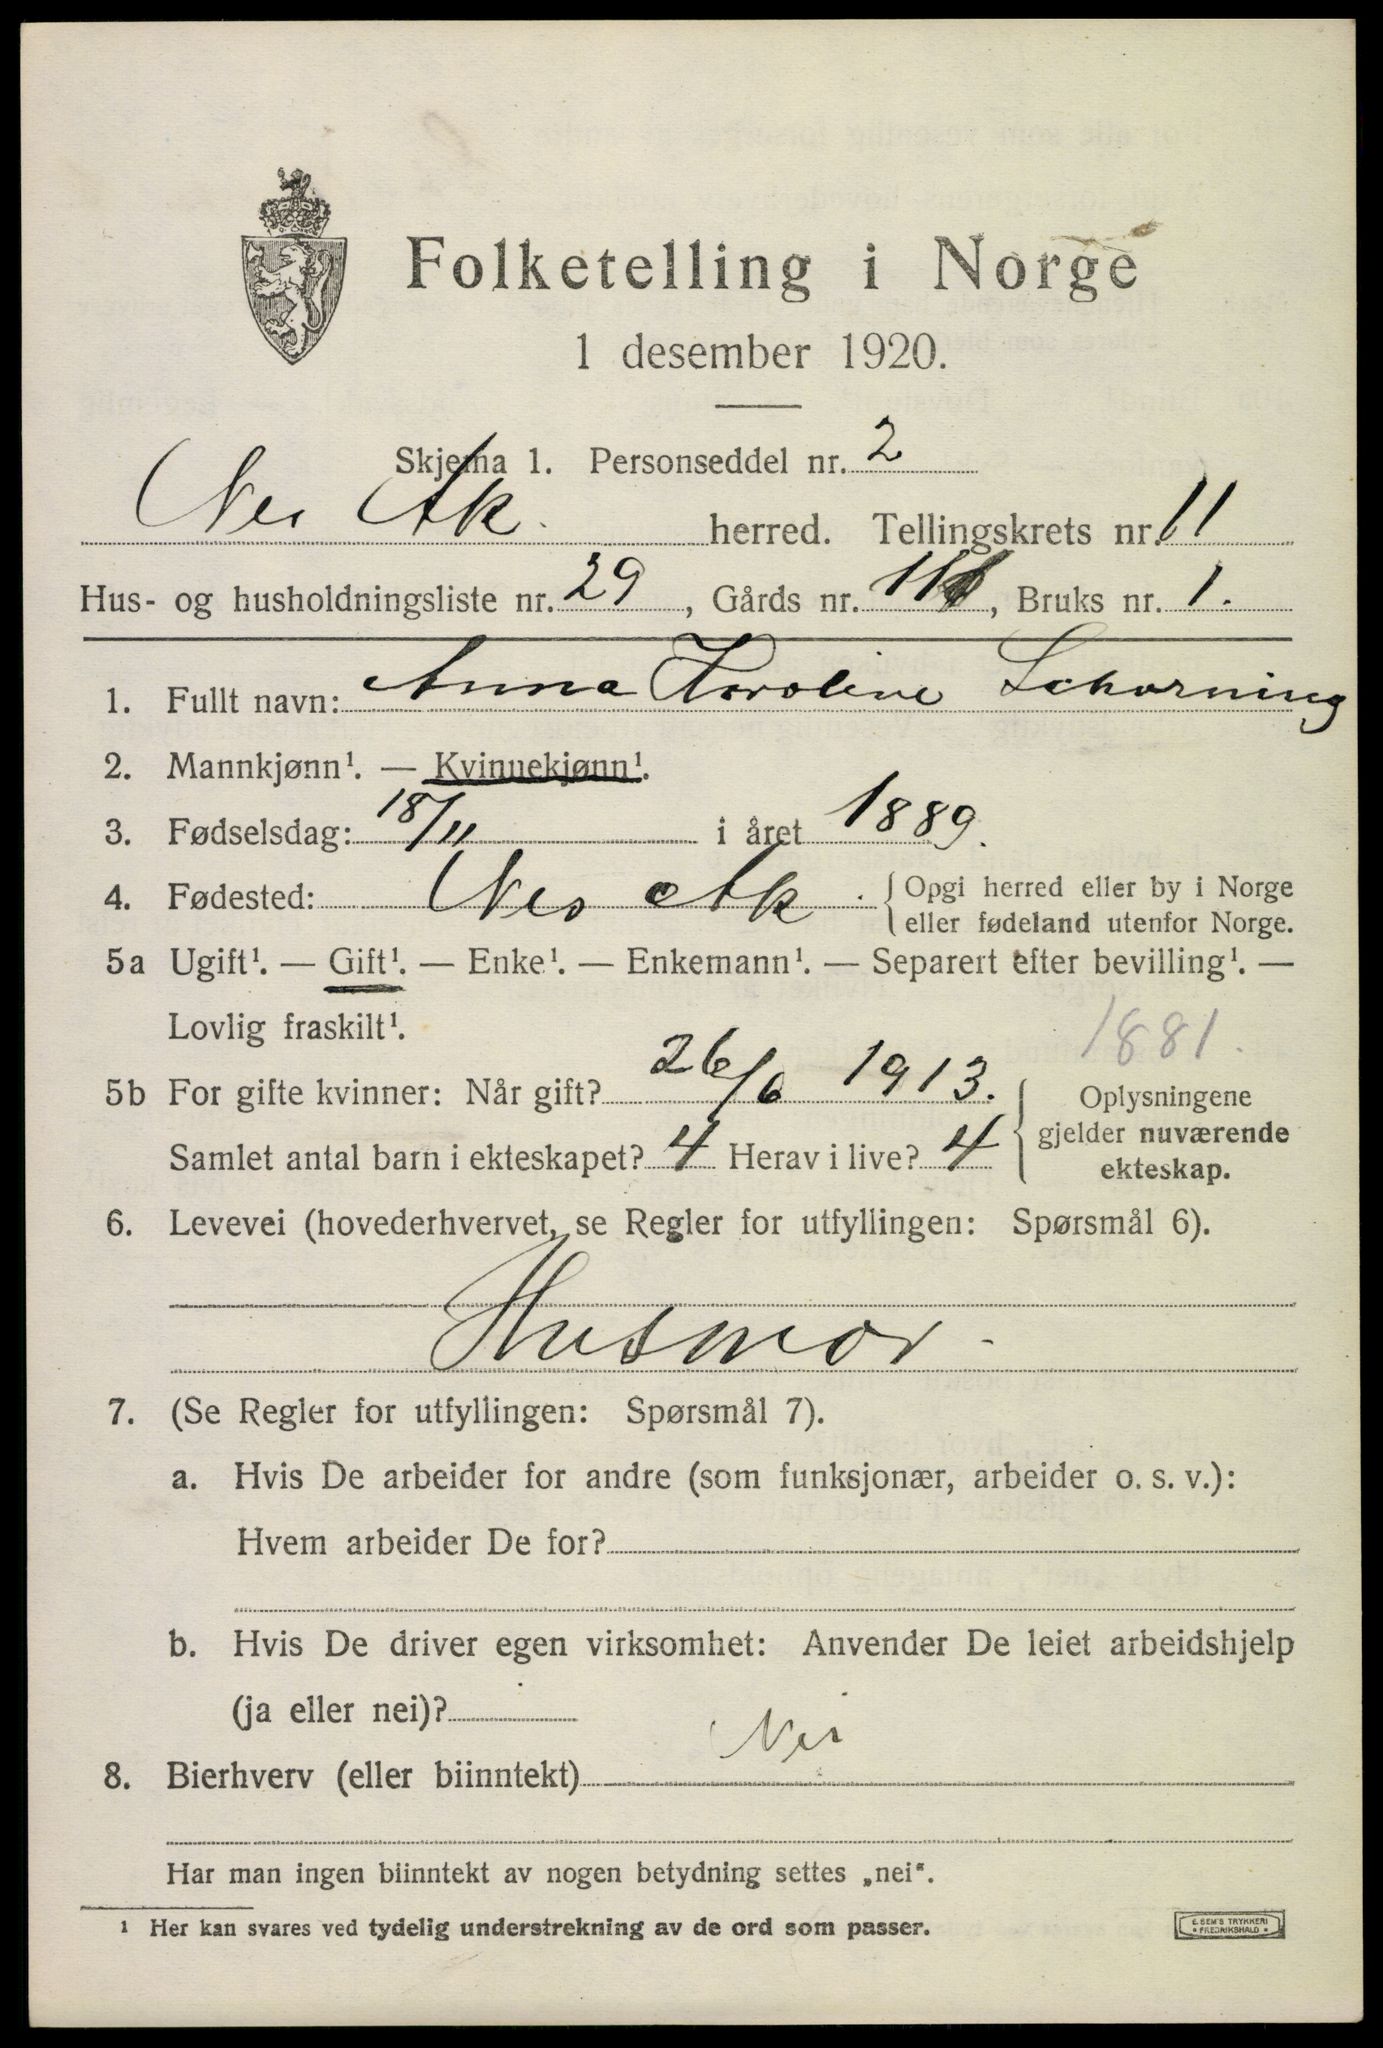 Folketelling i Norge
1 desember 1920.
Skjema 1. Personseddel nr. 2
Nes Ak. herred. Tellingskrets nr. 11
Hus- og husholdningsliste nr. 29, Gårds nr. 11, Bruks nr. 1.
1. Fullt navn: Anna Karoline Schorning
2. Mannkjønn¹. — Kvinnekjønn¹.
3. Fødselsdag: 18/11 i året 1889.
4. Fødested: Nes Ak. { Opgi herred eller by i Norge
eller fødeland utenfor Norge.
5a Ugift¹. — Gift¹. — Enke¹. — Enkemann¹. — Separert efter bevilling¹. —
Lovlig fraskilt¹.
1881.
5b For gifte kvinner: Når gift? 26/6 1913. { Oplysningene
gjelder nuværende
ekteskap.
Samlet antal barn i ekteskapet? 4 Herav i live? 4
6. Levevei (hovederhvervet, se Regler for utfyllingen: Spørsmål 6).
Husmor.
7. (Se Regler for utfyllingen: Spørsmål 7).
a. Hvis De arbeider for andre (som funksjonær, arbeider o. s. v.):
Hvem arbeider De for?
b. Hvis De driver egen virksomhet: Anvender De leiet arbeidshjelp
(ja eller nei)?
8. Bierhverv (eller biinntekt) Nei
Har man ingen biinntekt av nogen betydning settes „nei".
¹ Her kan svares ved tydelig understrekning av de ord som passer.
E. SEM'S TRYKKERI
FREDRIKSHALD